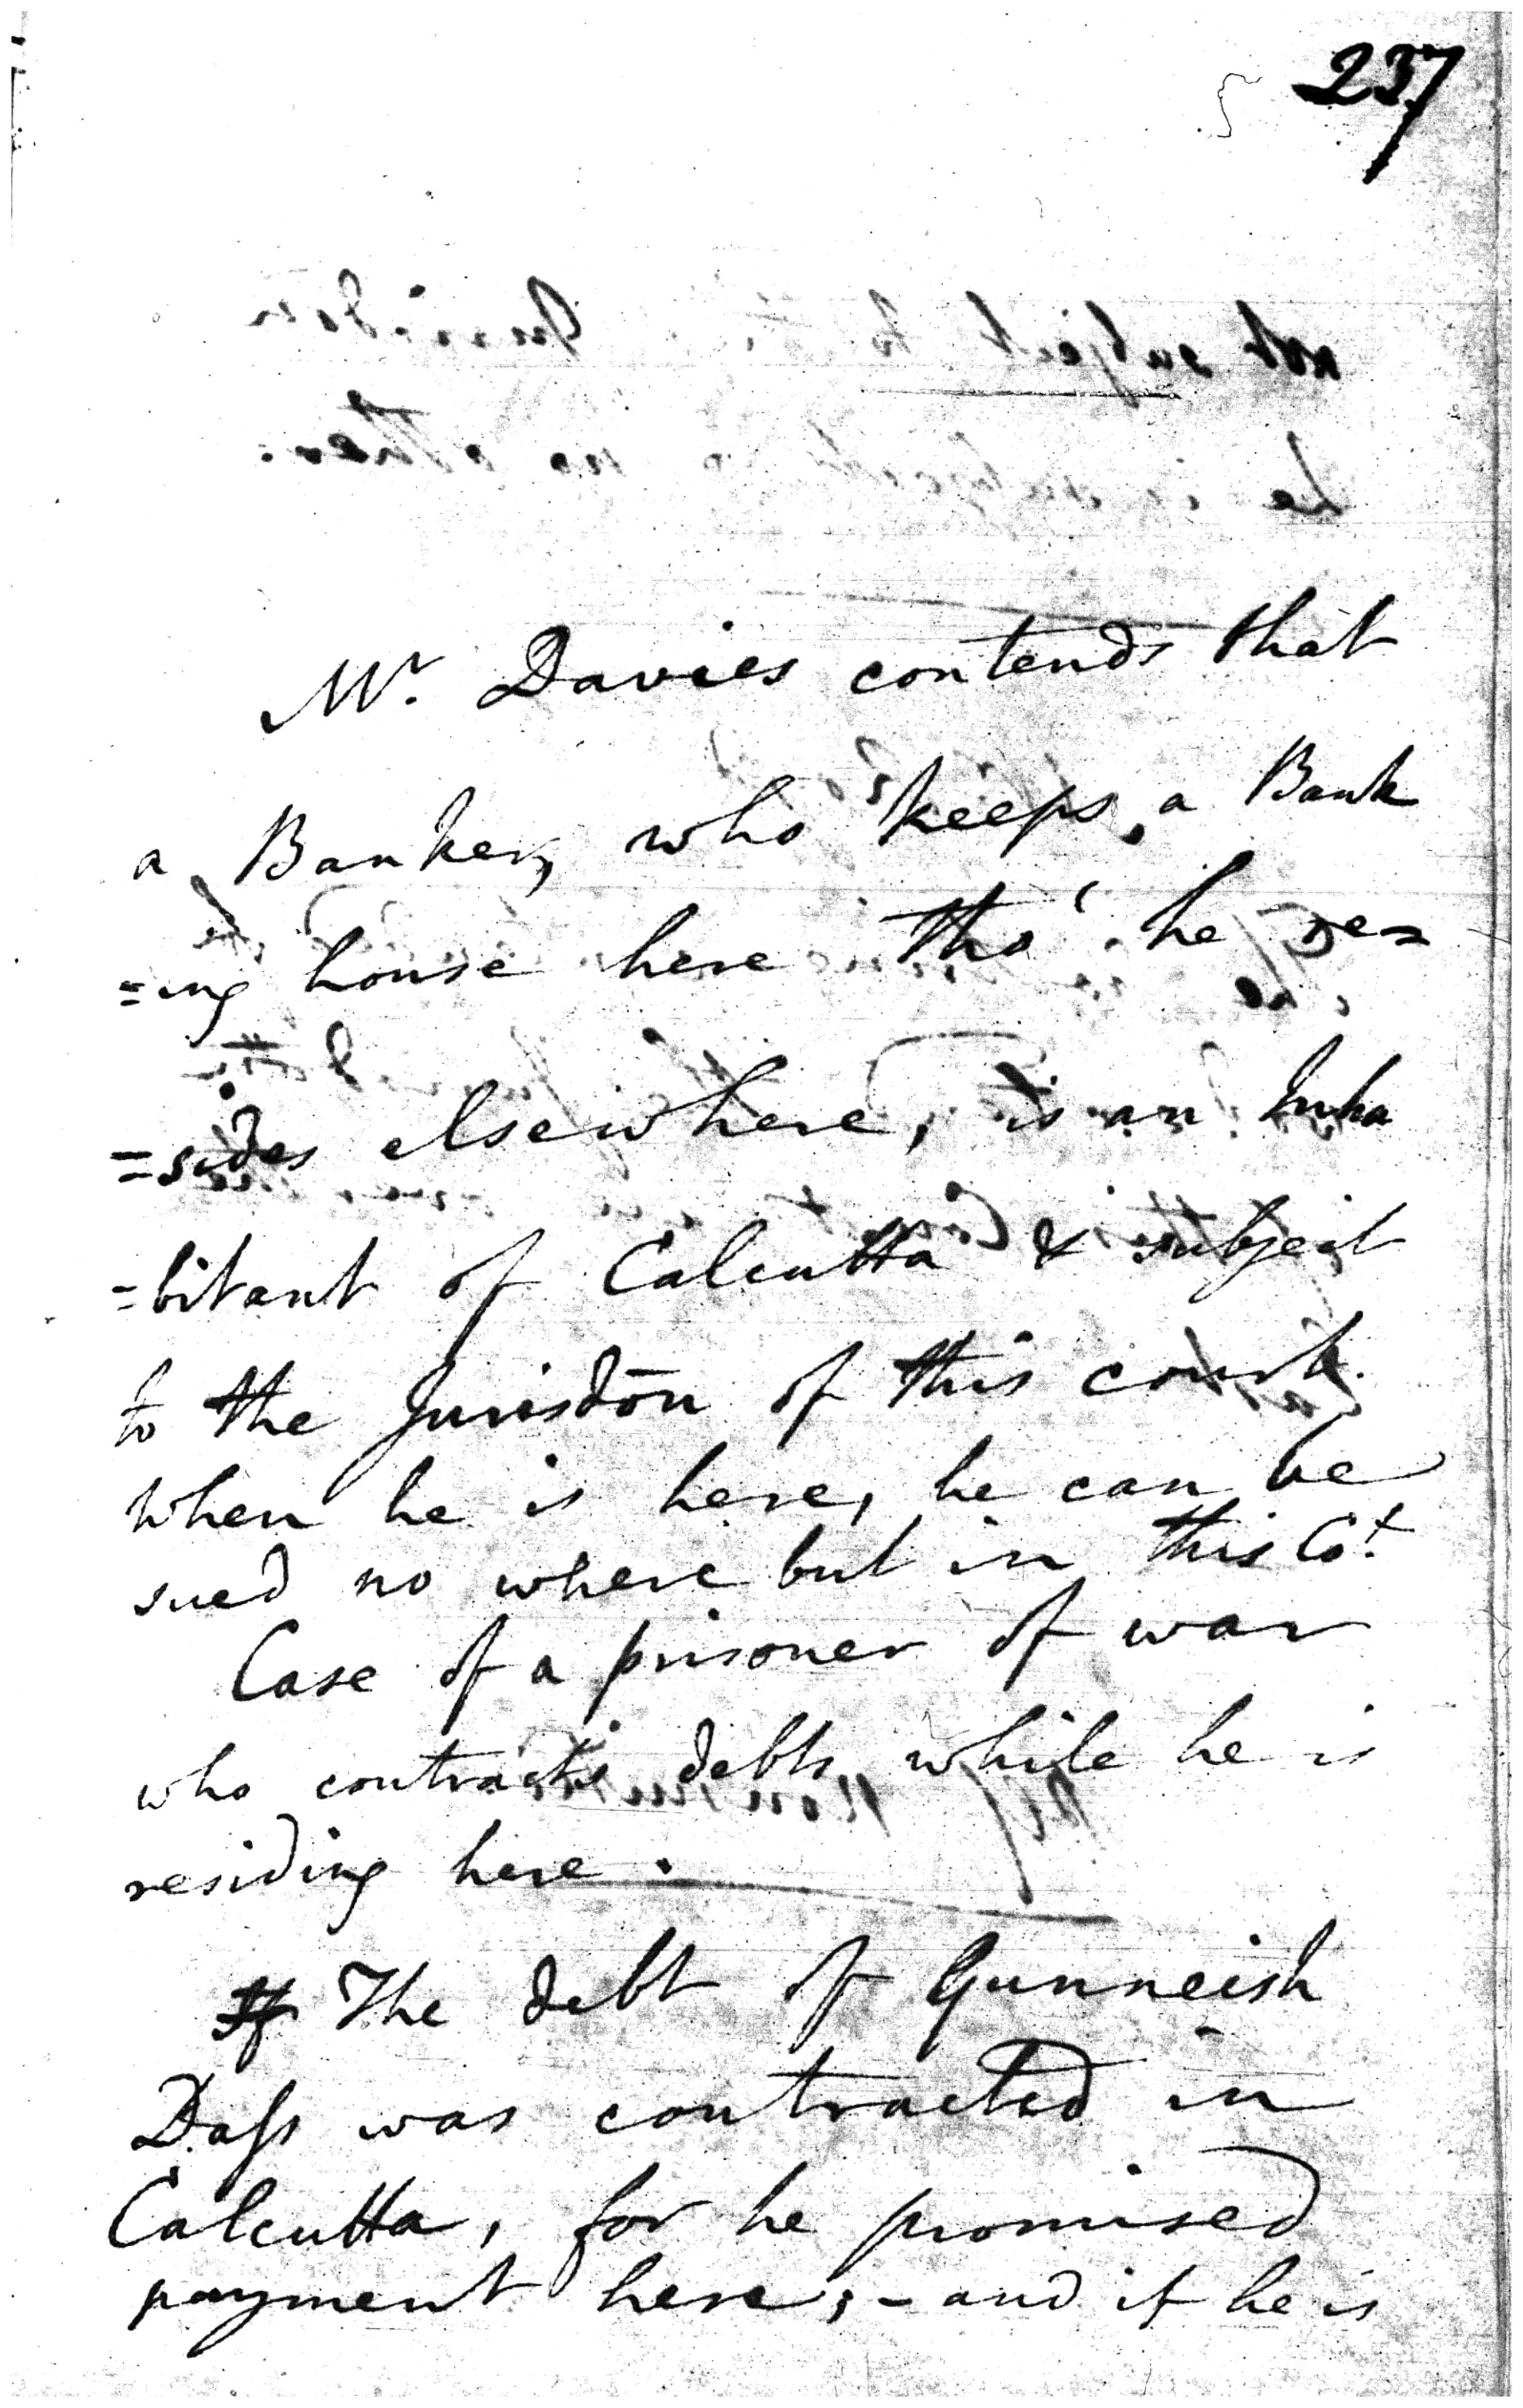 237
Mr. Davies contends that
a Banker, who keeps a Bank
=ing house here tho' he re=
=sides elsewhere, is an Inha
=bitant of Calcutta & subject
to the Jurisdōn of this court.
when he is here, he can be
sued no where but in this Cot.
Case of a prisoner of war
who contracts debts while he is
residing here.
The debt of Gunneish
Dass was contracted in
Calcutta, for he promised
payment here; - and if he is